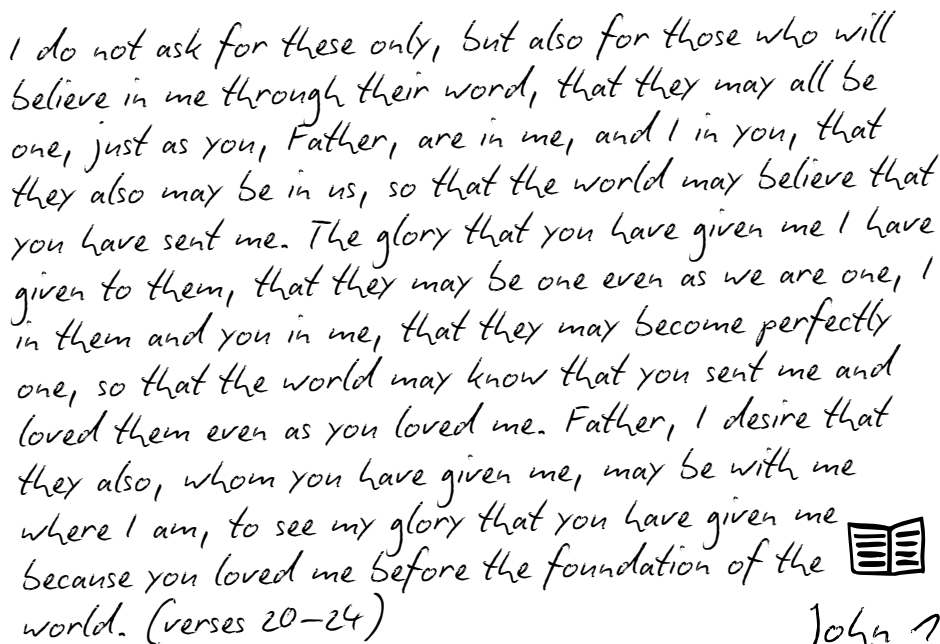 I do not ask for these only, but also for those who will
believe in me through their word, that they may all be
one, just as you, Father, are in me, and I in you, that
they also may be in us, so that the world may believe that
you have sent me. The glory that you have given me I have
given to them, that they may be one even as we are one, I
in them and you in me, that they may become perfectly
one, so that the world may know that you sent me and
loved them even as you loved me. Father, I desire that
they also, whom you have given me, may be with me
where I am, to see my glory that you have given me
because you loved me before the foundation of the
world. (verses 20–24)
John